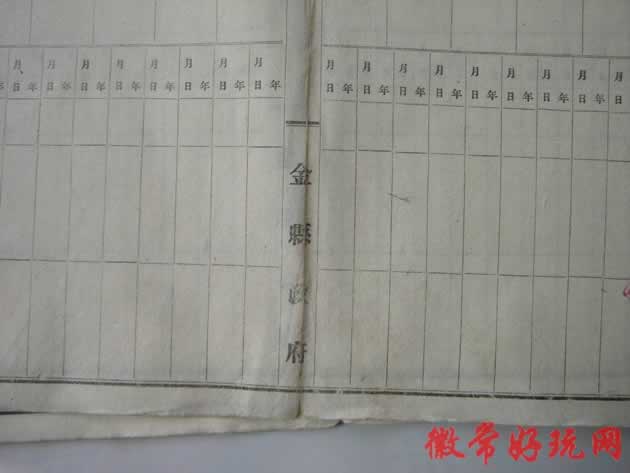 月 月 月 月 月 月 月 月
年 日 年 日 年 日 年 日 年 日 年 日 年 日 年 日 年
月 月 月 月 月 月 月 月 月
日 年 日 年 日 年 日 年 日 年 日 年 日 年 日 年 日
金縣政府
徽常好玩网